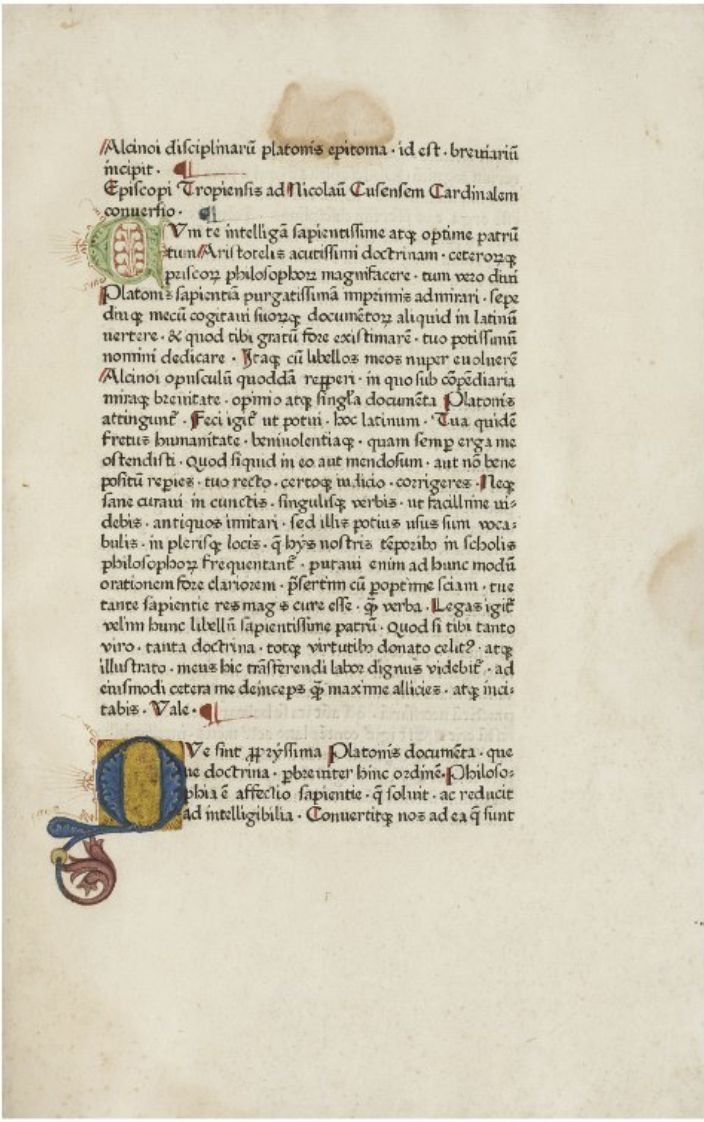 Alcinoi disciplinarū platonis epitoma · id est · breviariū
incipit ·
Episcopi Tropiensis ad Nicolaū Cusensem Cardinalem
conversio ·
CVm te intelligā sapientissime atqꝫ optime patrū
tum Aristotelis acutissimi doctrinam · ceterorꝝqꝫ
priscoꝝ philosophoꝝ magnifacere · tum vero divi
Platonis sapientiā purgatissimā inprimis admirari · sepe
diuqꝫ mecū cogitavi suoꝝqꝫ documētoꝝ aliquid in latinū
vertere · & quod tibi gratū fore existimarē · tuo potissimū
nomini dedicare · Itaqꝫ cū libellos meos nuper evolverē
Alcinoi opusculū quoddā reꝑperi · in quo sub cōpēdiaria
miraqꝫ brevitate · opimo atqꝫ singl̄a documēta Platonis
attingunt᷑ · Feci igit᷑ ut potui · hoc latinum · Tua quidē
fretus humanitate · benivolentiaqꝫ · quam semꝑ erga me
ostendisti · Quod siquid in eo aut mendosum · aut nō bene
positū repies · tuo recto · certoqꝫ iudicio · corrigeres · Neqꝫ
sane curavi in cunctis · singulisqꝫ verbis · ut facillime vi⸗
debis · antiquos imitari · sed illis potius usus sum voca⸗
bulis · in plerisqꝫ locis · q̄ hys nostris tēporibꝫ in scholis
philosophoꝝ frequentant᷑ · putavi enim ad hunc modū
orationem fore clariorem · p̄sertim cū ꝑoptime sciam · tue
tante sapientie res magis cure esse · qꝫ̄ verba · Legas igit᷑
velim hunc libellū sapientissime patrū · Quod si tibi tanto
viro · tanta doctrina · totqꝫ virtutibꝫ donato celit᷑? · atqꝫ
illustrato · meus hic trāsferendi labor dignus videbit᷑ · ad
eiusmodi cetera me deinceps qꝫ̄ maxime allicies · atqꝫ inci⸗
tabis · Vale ·
QVe sint ꝓprÿssima Platonis documēta · que
ve doctrina · ꝑbreviter hinc ordinē · Philoso⸗
phia ē affectio sapientie · q̄ solvit · ac reducit
ad intelligibilia · Convertitqꝫ nos ad ea q̄ sunt